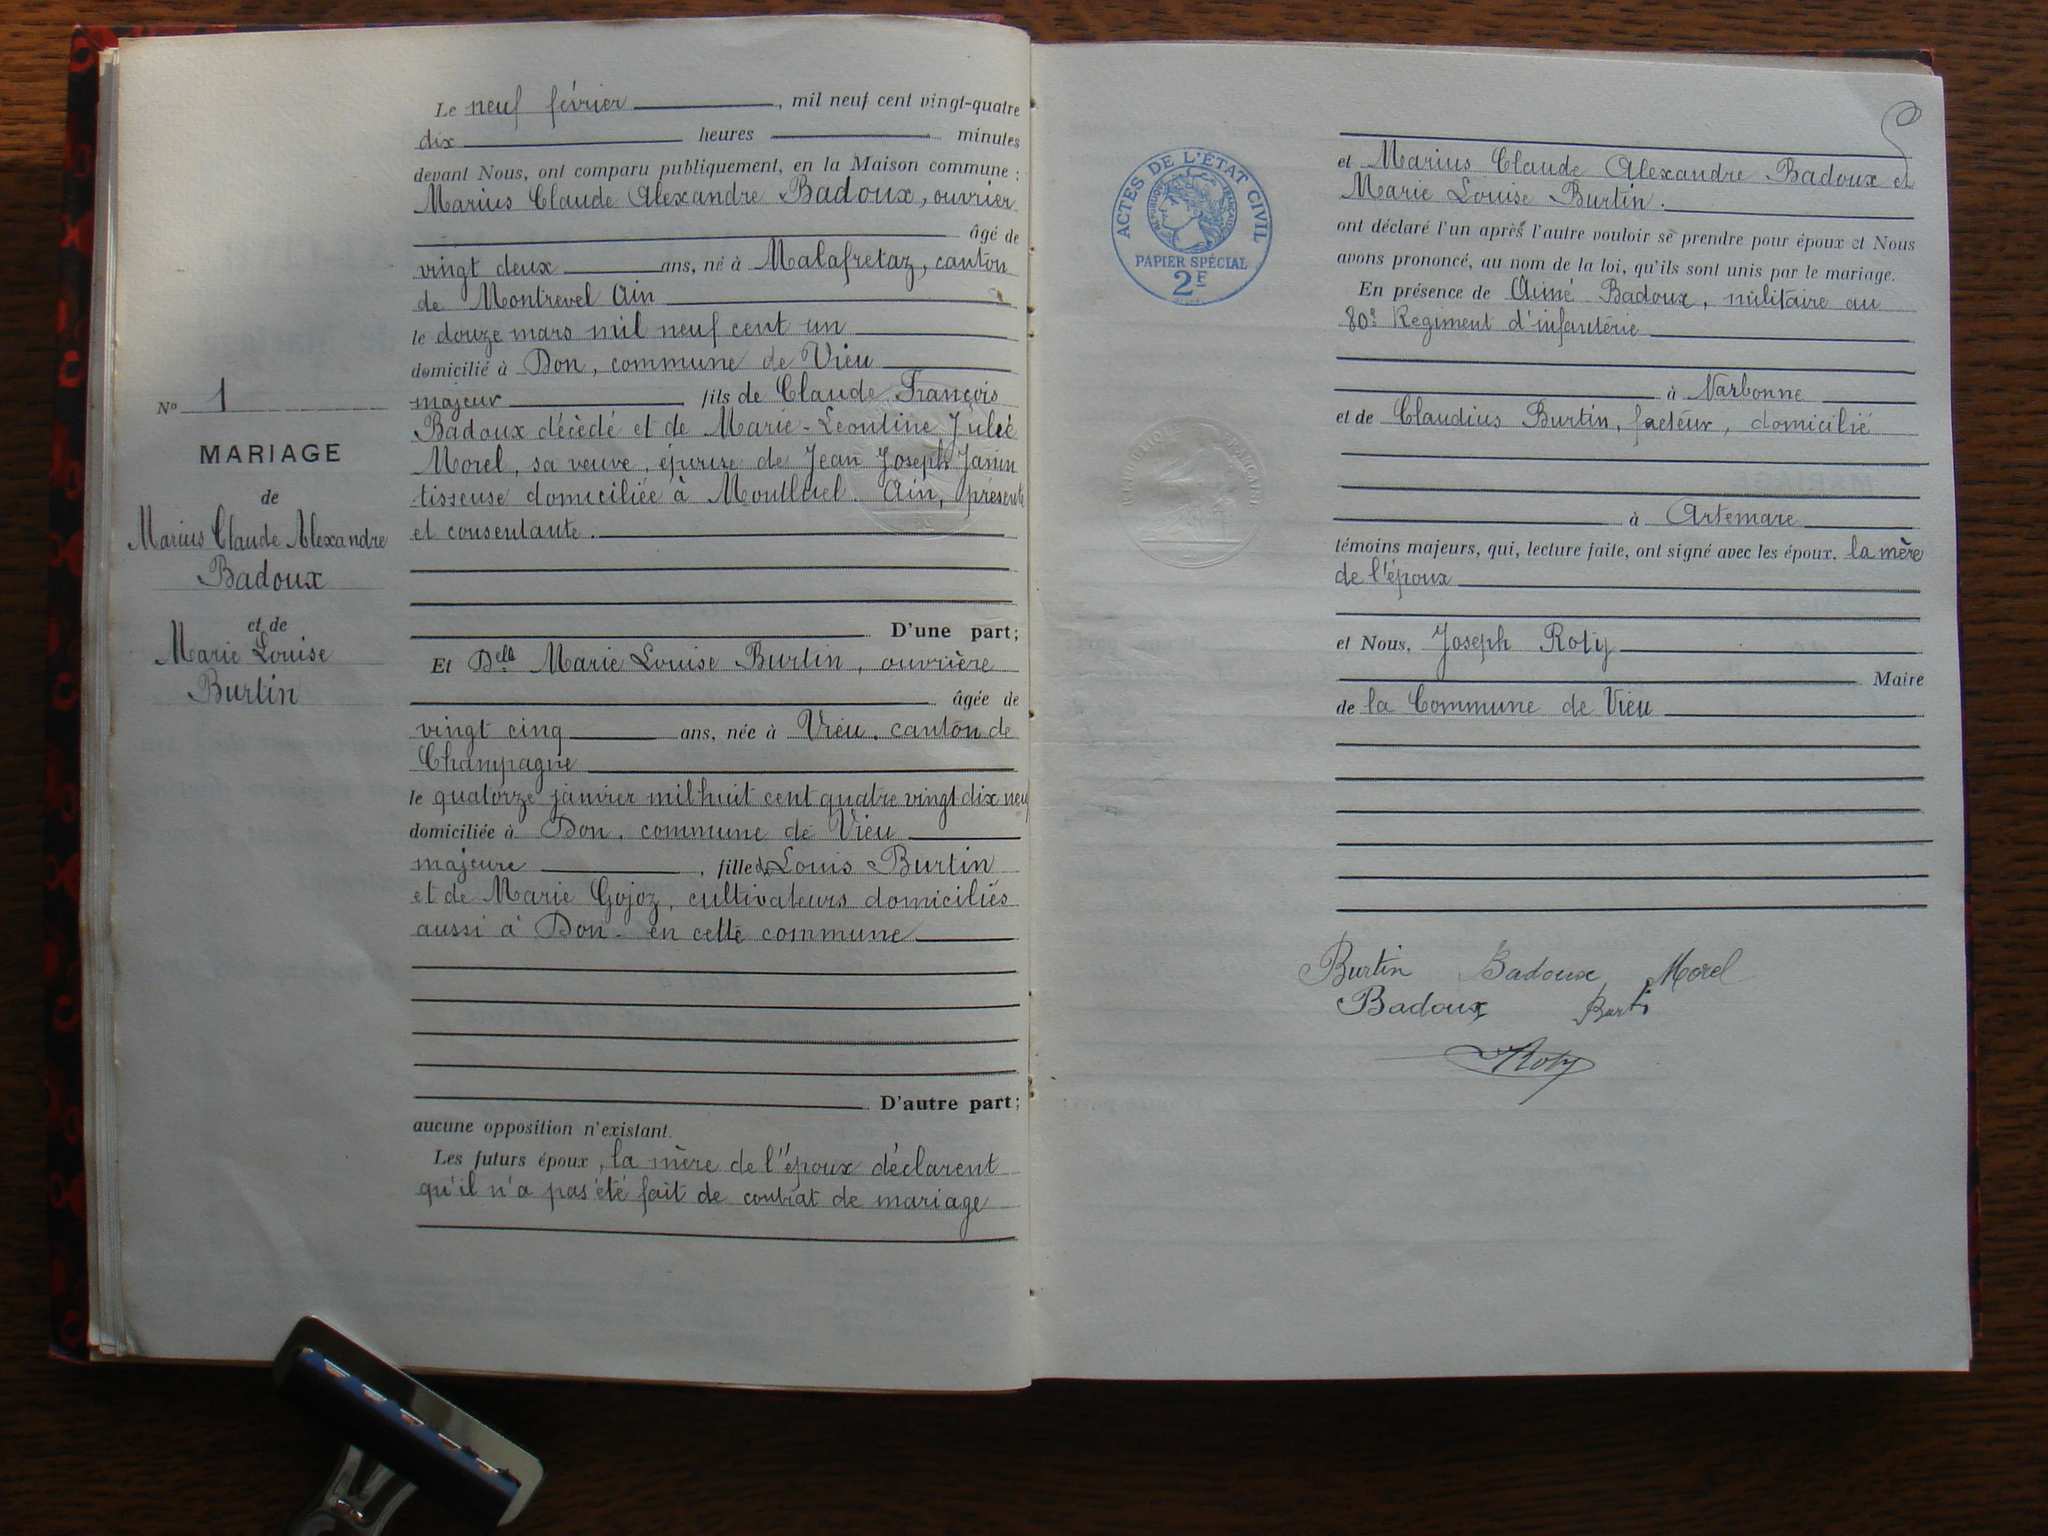 Le neuf février, mil neuf cent vingt-quatre
dix heures minutes
devant Nous, ont comparu publiquement, en la Maison commune :
Marius Claude Alexandre Badoux, ouvrier
âgé de
vingt deux ans, né à Malafretaz, canton
de Montrevel Ain
le douze mars mil neuf cent un
domicilié à Don, commune de Vieu
majeur fils de Claude François
Badoux décèdé et de Marie-Léontine Julie
Morel, sa veuve, épouse de Jean Joseph Janin
tisseuse domiciliée à Montluel. Ain, présente
et consentante.
D'une part;
Et Delle Marie Louise Burtin, ouvrière
âgée de
vingt cinq ans, née à Vieu, canton de
Champagne
le quatorze janvier mil huit cent quatre vingt dix neuf
domiciliée à Don, commune de Vieu
majeure, fille de Louis Burtin
et de Marie Gojoz, cultivateurs domiciliés
aussi à Don en cette commune
D'autre part;
aucune opposition n'existant.
Les futurs époux, la mère de l'époux déclarent
qu'il n'a pas été fait de contrat de mariage
No 1
MARIAGE
de
Marius Claude Alexandre
Badoux
et de
Marie Louise
Burtin
ACTES DE L'ÉTAT CIVIL
PAPIER SPÉCIAL
2F
et Marius Claude Alexandre Badoux et
Marie Louise Burtin.
ont déclaré l'un après l'autre vouloir se prendre pour époux et Nous
avons prononcé, au nom de la loi, qu'ils sont unis par le mariage.
En présence de Aimé Badoux, militaire au
80e Regiment d'infantérie
à Narbonne
et de Claudius Burtin, facteur, domicilié
à Artemare
témoins majeurs, qui, lecture faite, ont signé avec les époux, la mère
de l'époux
et Nous, Joseph Roty
Maire
de la Commune de Vieu
Burtin Badoux Morel
Badoux Burti
Roty